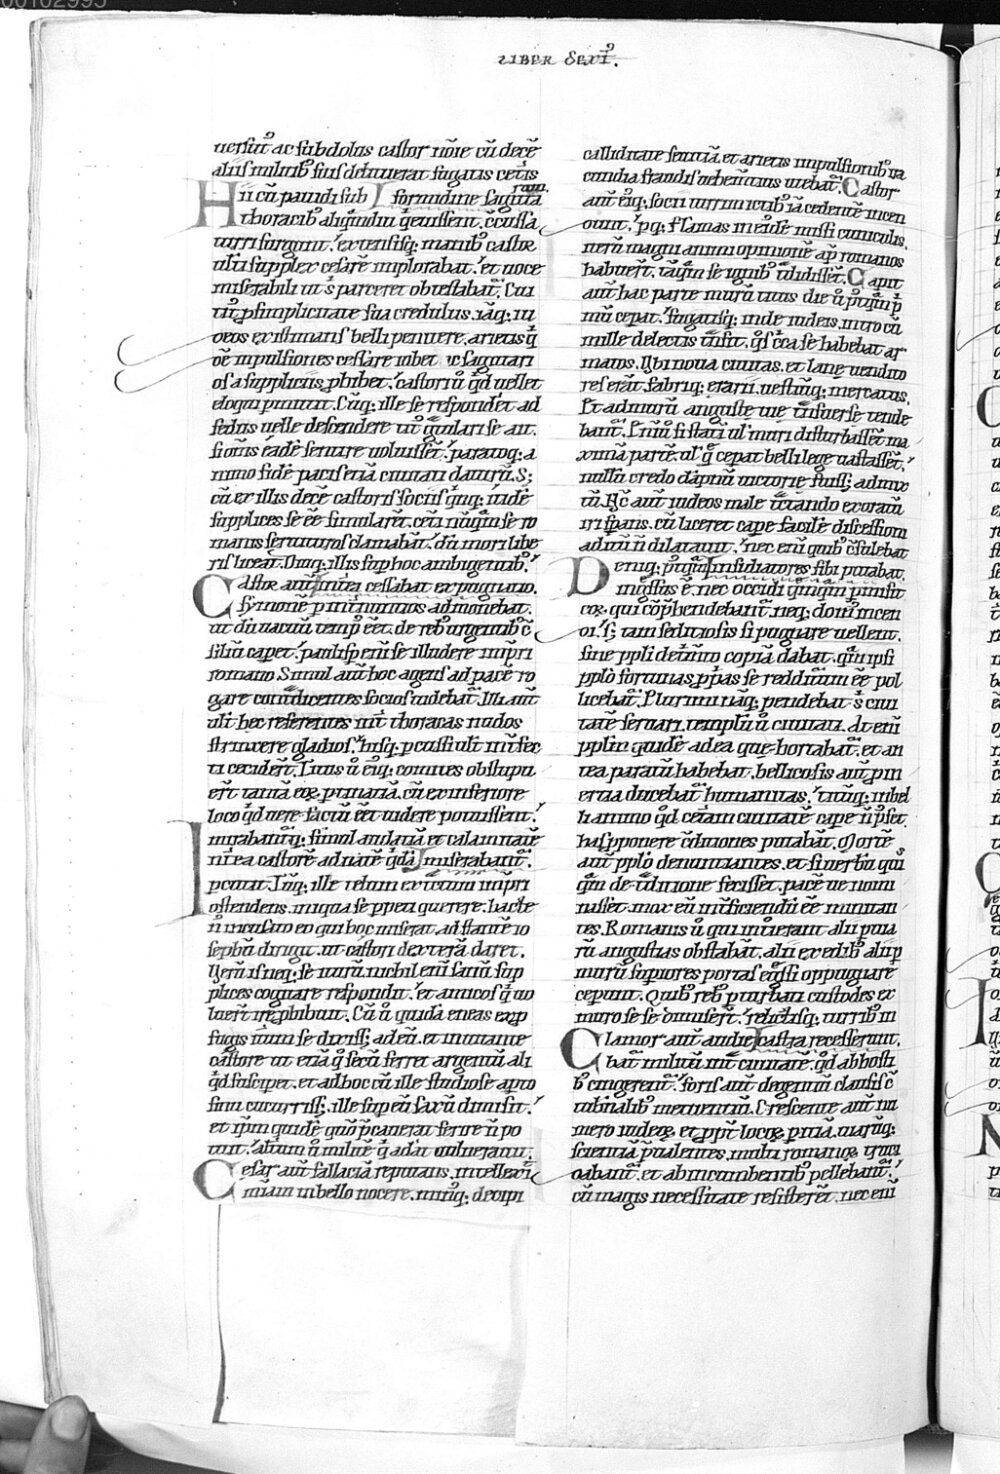 LIBER SEXT᷒.
uersut᷒ ac subdolus castor nōıe cū decē
aliis militib᷒ suis detinetur fugatis cet̄is
Hii cū pauidi sub formidine sagitta
rum.
thoracib᷒ aliq̄ndiu q̄euissent. c̄cussa
turri surgunt. extensisq; manib᷒ castor
uelut supplex cesarē implorabat. et uoce
miserabili ut s᷒ parceret obtestabat̄. Cui
tit᷒ p simplicitate sua credulus. iāq; iu
deos existimans belli penitere. arietis q̄
dē impulsiones cessare iubet. & sagittari
os a suppliciis phibet. castoriū qd̄ uellet
eloqui pmittit. Cūq; ille se respondet ad
fedus uelle descendere tit᷒ gtulari se ait.
si om̄s eadē sentire uoluissēt. paratoq; a
nimo fidē pacis etiā ciuitati daturū. S;
cū ex illis decē castoris sociis q̄nq; itidē
supplices se eē simularēt. cet̄i nūq̄m se ro
manis seruituros clamabāt. dū mori libe
ris liceat. Diuq; illis sup hoc ambigentib᷒.
Castor aut̄ mittens cessabat expugnatio.
symonē p int̄nuntios admonebat.
ut dū uacuū temp᷒ eēt. de reb᷒ urgentib᷒ c̄
siliū capet. paulisp eni se illudere imp̄ri
romano. Simul aut̄ hoc agens ad pacē ro
gare cont᷒dicentes socios uidebat̄. Illi aut̄
uelut hec referentes int̄ thoracas nudos
strinxere gladios. hisq; pcussi uelut int̄fec
ti ceciderūt. Titus ū eiq; comites obstupu
erūt tantā eoꝝ ptinatiā. cū ex inferiore
loco qd̄ uere factū eēt uidere potuissent.
mirabantq; simul audaciā et calamitatē
Int̄ea castorē ad narē q̄dā miserabant̄.
pcutit. Itaq; ille telum extectum imp̄ri
ostendens. iniqua se ppeti querere. hac te
n̄ incusato eo qui hoc miserat. adstantē io
sephū dirigit. ut castori dexterā daret.
Verū is neq; se iturū nichil enī sanū sup
plices cogitare respondit. et amicos q̄ uo
luerūt ire phibuit. Cū ū quidā eneas exp
fugis itum se dixiss; adeū. et inuitante
castore ut etiā q̄ secū ferret argentū ali
qd̄ susciperet. et ad hoc cū ille studiose apto
sinu cucurriss; ille sup eū saxū dimisit.
et ip̄m quidē quō p̄cauerat ferire n̄ po
tuit. aliūm ū militē q̄ aderat uulnerauit.
Cesar aut̄ fallaciā reputans. intellexit
mīam in bello nocere. minq; decipi
calliditate seuitiā. et arietis impulsionib᷒ ira
cundia fraudis uehem̄tius utebat̄. Castor
aut̄ eiq; socii turrim ictib᷒ iā cedentē incen
dunt. pq; flamas in eidē missi cuniculis.
uerū magni animi opinionē ap̄ romanos
habuerūt. tāq̄m se ignib᷒ t᷒didissēt. Capit
aut̄ hac parte murū titus die v̄ p᷒tq̄m p᷒
mū cepat. fugatisq; inde iudeis. intro cū
mille delectis int̄sit. q᷒s c̄ca se habebat ar
matos. Ubi noua ciuitas. et lane uendito
res erāt. fabriq; erarii. uestiuq; mercatus.
Et ad murū anguste uie t᷒nsuerse tende
bant. Et nisi si statī ul̓ muri disturbassēt ma
ximā partē. ul̓ q̄ cepat belli lege uastassēt.
nullū credo dāpnū uictorie fuiss; admix
tū. N̄c aut̄ iudeos male t᷒ctando exoratū
iri sp̄ans. cū liceret cape facile discessiom
aditū n̄ dilatauit. nec enī quib᷒ c̄sulebat
Deniq; p᷒tq̄m insidiatores sibi putabat.
ingressus ē. nec occidi quenq̄m p̄misit
eoꝝ qui cōphendebant̄. neq; domū incen
di. s; tam seditiosis si pugnare uellent.
sine ppli det᷒mto copiā dabat. q̄m ipsi
pplo fortunas ppas se redditurū eē pol
licebat̄. Plurimi naq; pendebat s᷒ ciui
tatē seruari. templū ū ciuitati. At enī
pplm quidē ad ea que hortabat̄. et an
tea paratū habebat. bellicosis aut̄ p in
ertia ducebat̄ humanitas. titūq; inbel
li animo qd̄ cetam ciuitatē cape n̄ p᷒sit.
has pponere c̄ditiones putabāt. Mortē
aut̄ pplo denuntiantes. et si uerbū qui
q̄m de t᷒ditione fecisset. pacē ue nomi
nasset. mox eū int̄ficiendū eē minitan
tes. Romanis ū qui int᷒ierant alii puia
rū angustias obstabāt. alii ex edib᷒ alii p
murū supiores portas egssi oppugnare
ceperunt. Quib᷒ reb᷒ pturbati custodes ex
muro se se dimiserūt. relictisq; turrib᷒ in
Clamor aut̄ audie castra recesserunt.
bat̄ militū int̄ ciuitatē. qd̄ ab hosti
b᷒ cingerent̄. foris aut̄ degentiū clausis c̄
tubnalib᷒ metuentiū. Crescente aut̄ nu
mero iudeoꝝ. et ppt̄ locoꝝ pitiā. uiaruq;
scientiā pualentes. multi romanoꝝ truci
dabant̄. et ab incumbentib᷒ pellebant̄.
cū magis necessitate resisterēt. nec enī